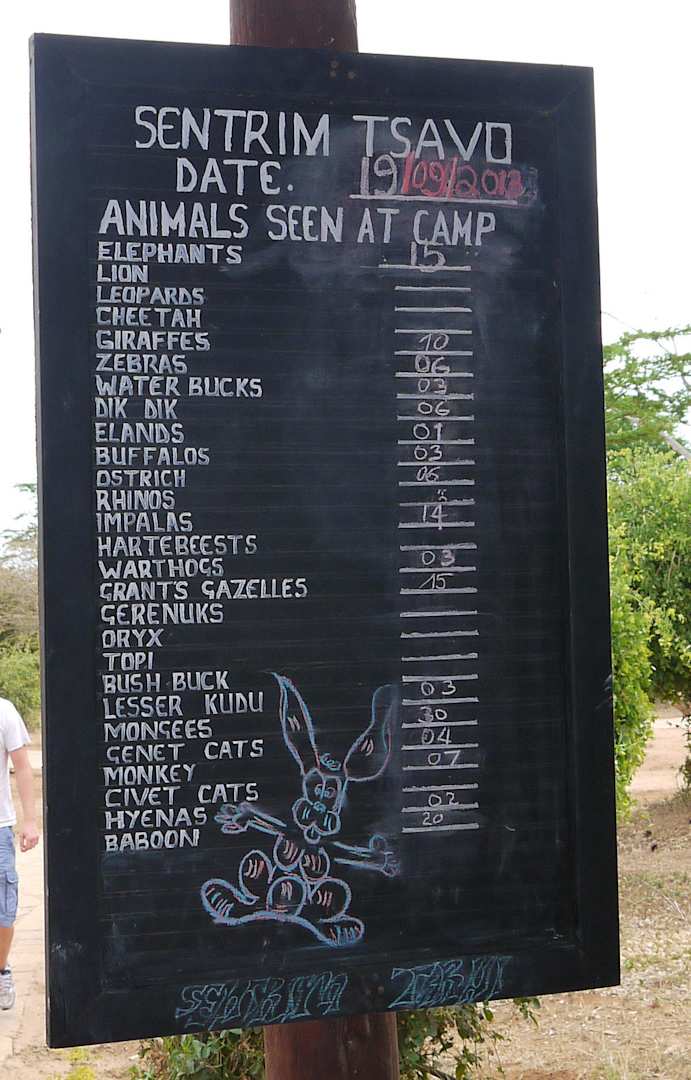 SENTRIM TSAVO
DATE. 19/09/2013
ANIMALS SEEN AT CAMP
ELEPHANTS 15
LION
LEOPARDS
CHEETAH
GIRAFFES 10
ZEBRAS 06
WATER BUCKS 03
DIK DIK 06
ELANDS 01
BUFFALOS 03
OSTRICH 06
RHINOS
IMPALAS 14
HARTEBEESTS
WARTHOGS 03
GRANT'S GAZELLES 15
GERENUKS
ORYX
TOPI
BUSH BUCK
LESSER KUDU 03
MONGEES 30
GENET CATS 04
MONKEY 07
CIVET CATS
HYENAS 02
BABOON 20
SENTRIM